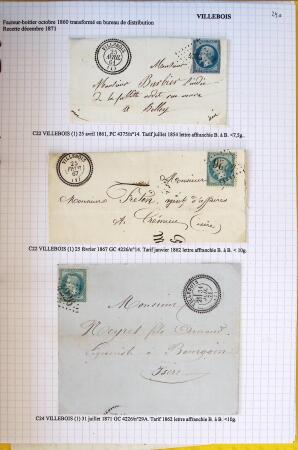 VILLEBOIS
Facteur-boitier octobre 1860 transformé en bureau de distribution
Recette décembre 1871
VILLEBOIS
25
AVRIL
61
(1)
Monsieur
Monsieur Barbier
a
Belley
C22 VILLEBOIS (1) 25 avril 1861, PC 4375/n°14. Tarif juillet 1854 lettre affranchie B. à B. <7,5g.
VILLEBOIS
25
FEVR
67
(1)
Monsieur
Monsieur Frelon, agent d'affaires
A. Crémieu
(isère)
C22 VILLEBOIS (1) 25 février 1867 GC 4226/n°14. Tarif janvier 1862 lettre affranchie B. à B. < 10g.
VILLEBOIS
Monsieur
Neyret fils
à Bourgoin
Isère
C24 VILLEBOIS (1) 31 juillet 1871 GC 4226/n°29A. Tarif 1862 lettre affranchie B. à B. <10g.